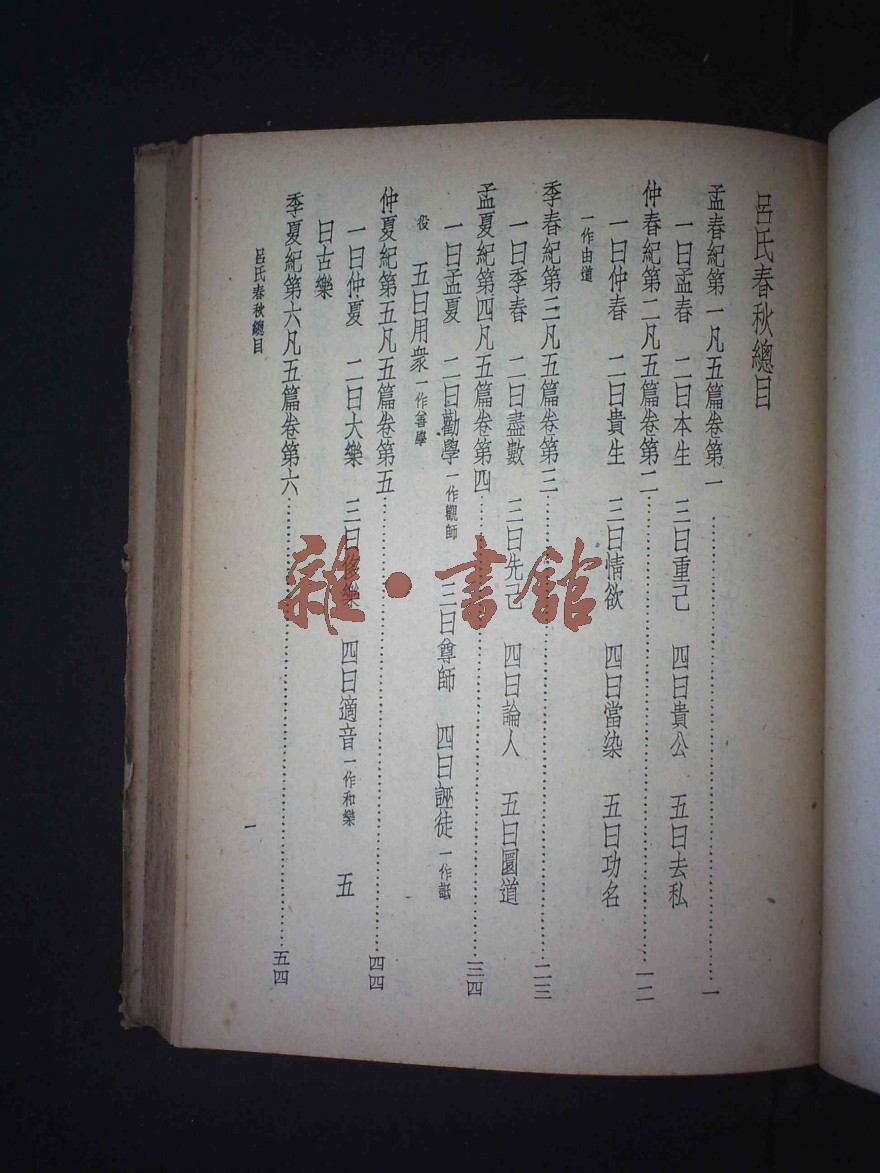 呂氏春秋總目
孟春紀第一凡五篇卷第一……一
一曰孟春 二曰本生 三曰重己 四曰貴公 五曰去私
仲春紀第二凡五篇卷第二……一二
一曰仲春 二曰貴生 三曰情欲 四曰當染 五曰功名
一作由道
季春紀第三凡五篇卷第三……二三
一曰季春 二曰盡數 三曰先己 四曰論人 五曰圜道
孟夏紀第四凡五篇卷第四……三四
一曰孟夏 二曰勸學一作觀師 三曰尊師 四曰誣徒一作詆
役 五曰用衆一作善學
仲夏紀第五凡五篇卷第五……四四
一曰仲夏 二曰大樂 三曰侈樂 四曰適音一作和樂 五
曰古樂
季夏紀第六凡五篇卷第六……五四
呂氏春秋總目
一
雜·書館